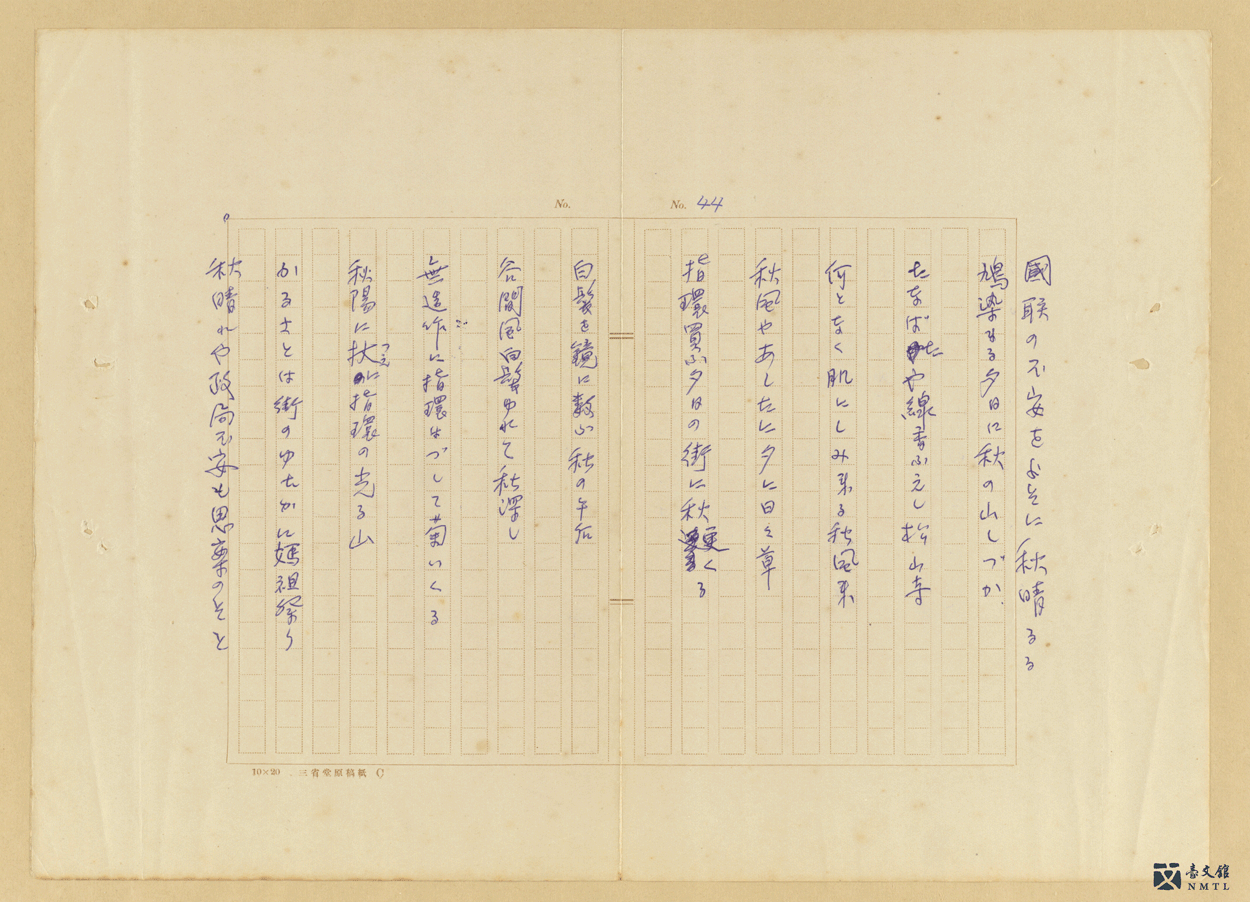 No. 44
國联の不安をよそに秋晴るる
鳩染める夕日に秋の山しづか
たなばたや線香ふえし松山寺
何となく肌にしみ来る秋風来
秋風やあしたに夕に日々草
指環買ふ夕日の街に秋更くる
No.
白髪を鏡に数ふ秋の午后
谷間風白髪ゆれて秋深し
無造作に指環はづして菊いくる
秋陽に扙に指環の光る山
つえ
かるさとは街のゆたかに媽祖祭り
秋晴れや政局不安も思案のそと
10×20 三省堂原稿紙 C
臺文館
NMTL